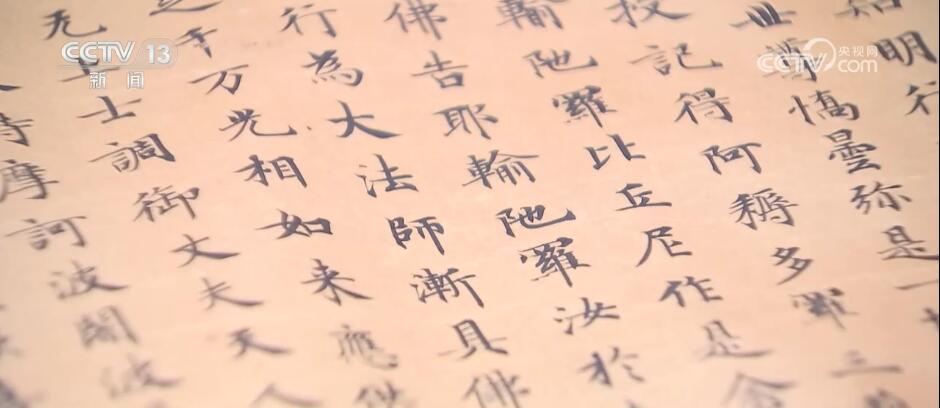 知明行
世尊憍曇弥是一
授記得阿耨多羅三
輸陁羅比丘尼作是念
佛告耶輸陁羅汝於
行為大法師漸具佛
千万光相如来應供
无上士調御丈夫天人
時摩訶波闍波
CCTV 13
新闻
CCTV.com
央视网